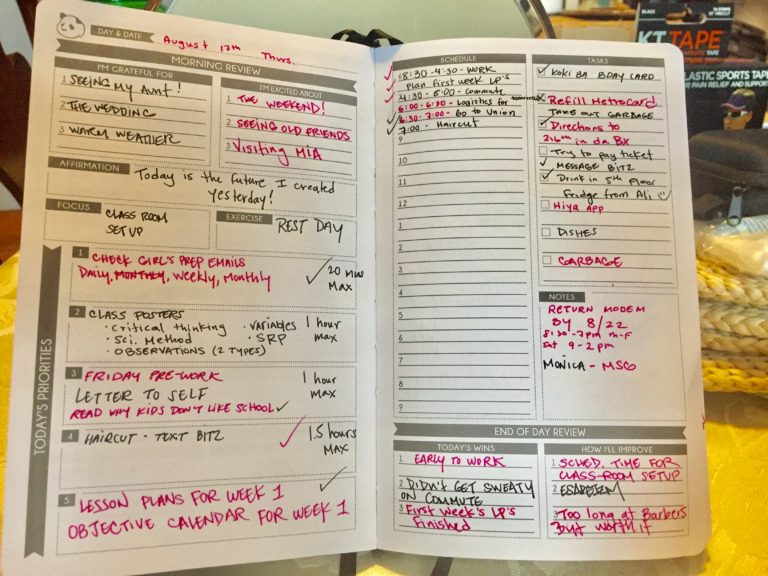 DAY & DATE
August 17th Thurs.
MORNING REVIEW
I'M GRATEFUL FOR
1 SEEING MY AUNT!
2 THE WEDDING
3 WARM WEATHER
I'M EXCITED ABOUT
1 THE WEEKEND!
2 SEEING OLD FRIENDS
3 Visiting MIA
AFFIRMATION
Today is the future I created
yesterday!
FOCUS
CLASS ROOM
SET UP
EXERCISE
REST DAY
TODAY'S PRIORITIES
1 CHECK GIRL'S PREP EMAILS
Daily, MONTHLY, Weekly, Monthly
20 Mins
Max
2 CLASS POSTERS
· Critical thinking · Variables
· Sci. Method · SRP
· OBSERVATIONS (2 TYPES)
1 hour
max
3 FRIDAY PRE-WORK
LETTER TO SELF
READ WHY KIDS DON'T LIKE SCHOOL
1 hour
Max
4 HAIRCUT - TEXT BITZ
1.5 hours
MAX
5 LESSON PLANS FOR WEEK 1
OBJECTIVE CALENDAR FOR WEEK 1
SCHEDULE
8:30 - 4:30 - WORK
Plan first week LP's
4:30 - 6:00 - Commute
6:00 - 6:30 - Logistics for
6:30 - 7:00 - Go to Union
7:00 - Haircut
9
10
11
12
1
2
3
4
5
6
7
8
9
TASKS
KOKI BA BDAY CARD
Refill Metrocard
TAKE OUT GARBAGE
Directions to
216th in da BX
Try to pay ticket
MESSAGE BITZ
Drink in 5th Floor
Fridge from Ali
Hiya App
DISHES
GARBAGE
NOTES
RETURN MODEM
BY 8/22
8:30 - 7pm M-F
Sat 9-2pm
MONICA - MSG
END OF DAY REVIEW
TODAY'S WINS
1 EARLY TO WORK
2 DIDN'T GET SWEATY
ON COMMUTE
3 First week's LP's
Finished
HOW I'LL IMPROVE
1 SCHED. TIME FOR
CLASS ROOM SETUP
2
3 Too long at Barbers
but worth it
BLACK
14 STRIPS
KT TAPE
ELASTIC SPORTS TAPE
FOR PAIN RELIEF AND SUPPORT